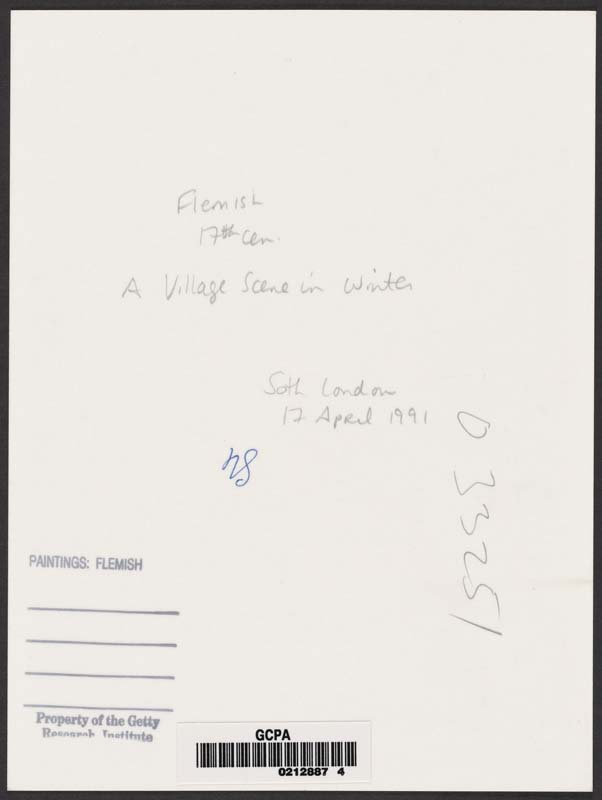 Flemish
17th Cen.
A Village Scene in Winter
Soth London
17 April 1991
D 33251
PAINTINGS: FLEMISH
Property of the Getty
Research Institute
GCPA
0212887 4